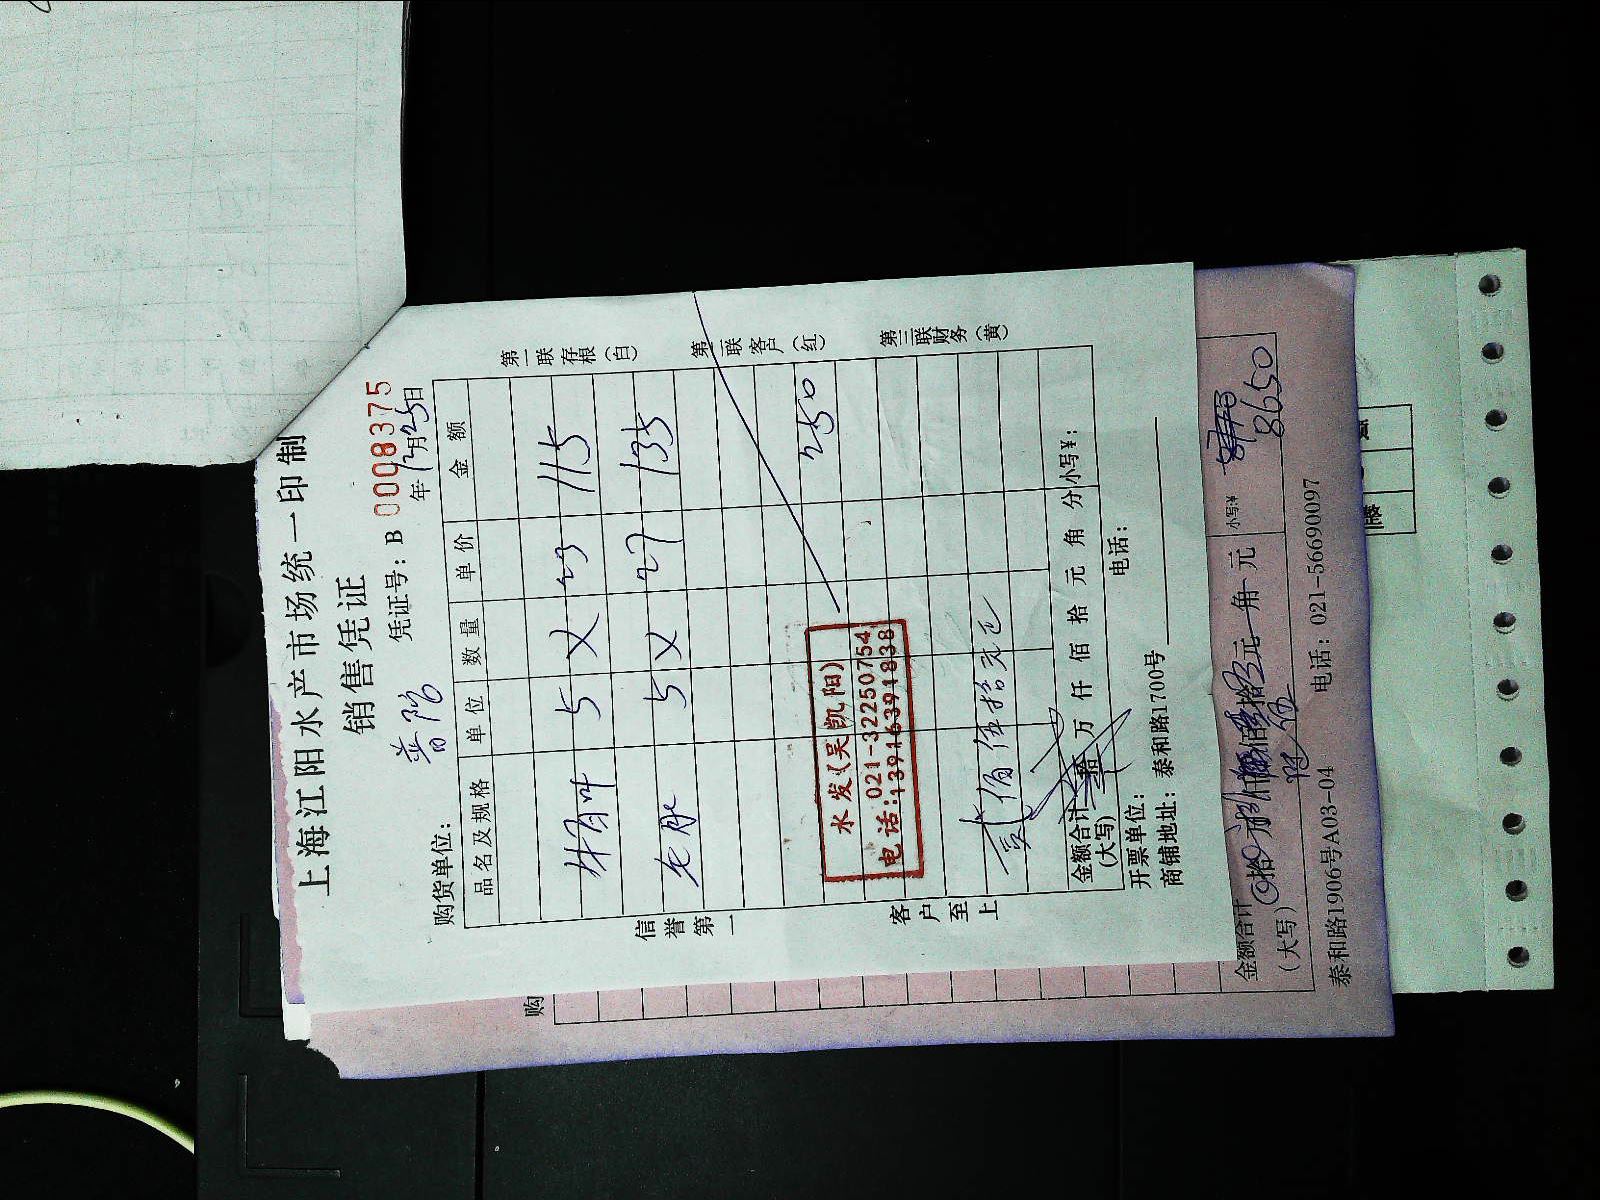 上海江阳水产市场统一印制
销售凭证
凭证号: B 0008375
普陀
年12月25日
购货单位:
品名及规格 单位 数量 单价 金额
5 X 23 115
5 X 27 135
250
水发(吴凯阳)
电话:021-32250754
13916391838
贰佰伍拾元正
金额合计
(大写) 拾万仟佰拾元角分 小写¥:
开票单位: 电话:
商铺地址: 泰和路1700号
信誉第一
客户至上
第一联存根(白)
第二联客户(红)
第三联财务(黄)
购
金额合计
(大写)
元 角 元 小写:¥ 8650
泰和路1906号A03-04 电话: 021-56690097